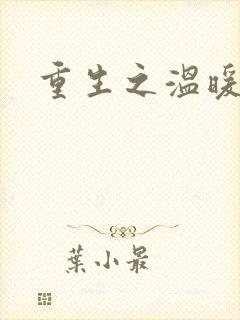 重生之温暖
葉小最